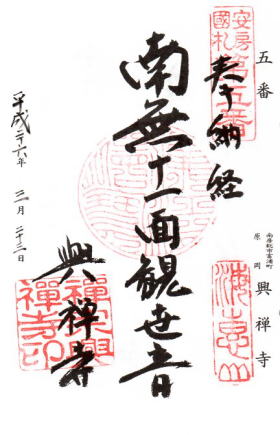 五番
南房総市富浦町
原岡
興禅寺
安房
國札
第五番
奉納経
南無十一面観世音
興禅寺
平成二十六年三月二十三日